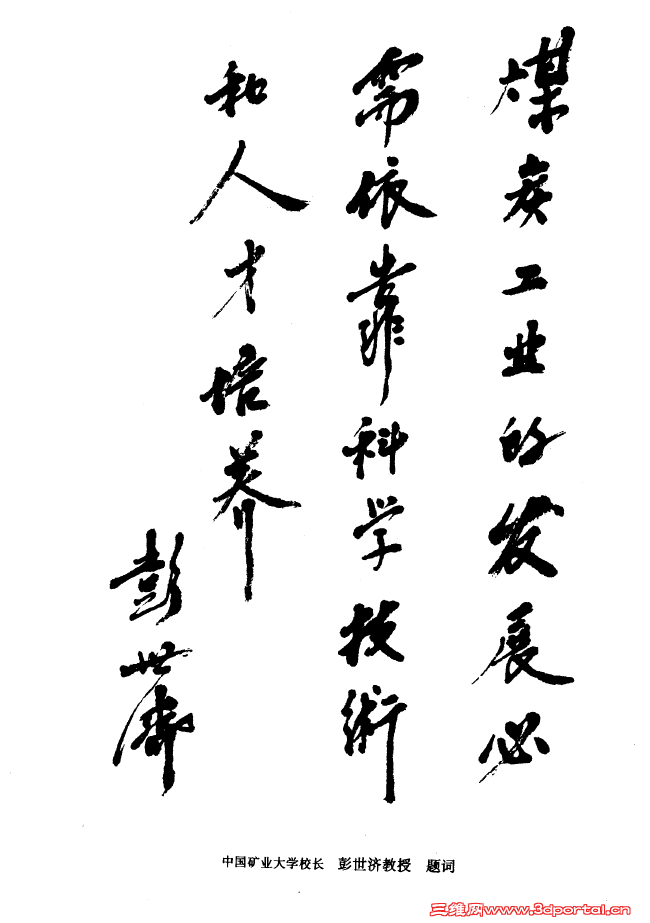 煤炭工业的发展必
需依靠科学技術
和人才培养
彭世濟
中国矿业大学校长 彭世济教授 题词
三维网www.3dportal.cn